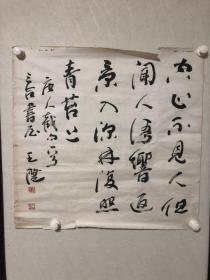 空山不見人但
聞人語響返
景入深林復照
青苔上
唐人
書屋 王